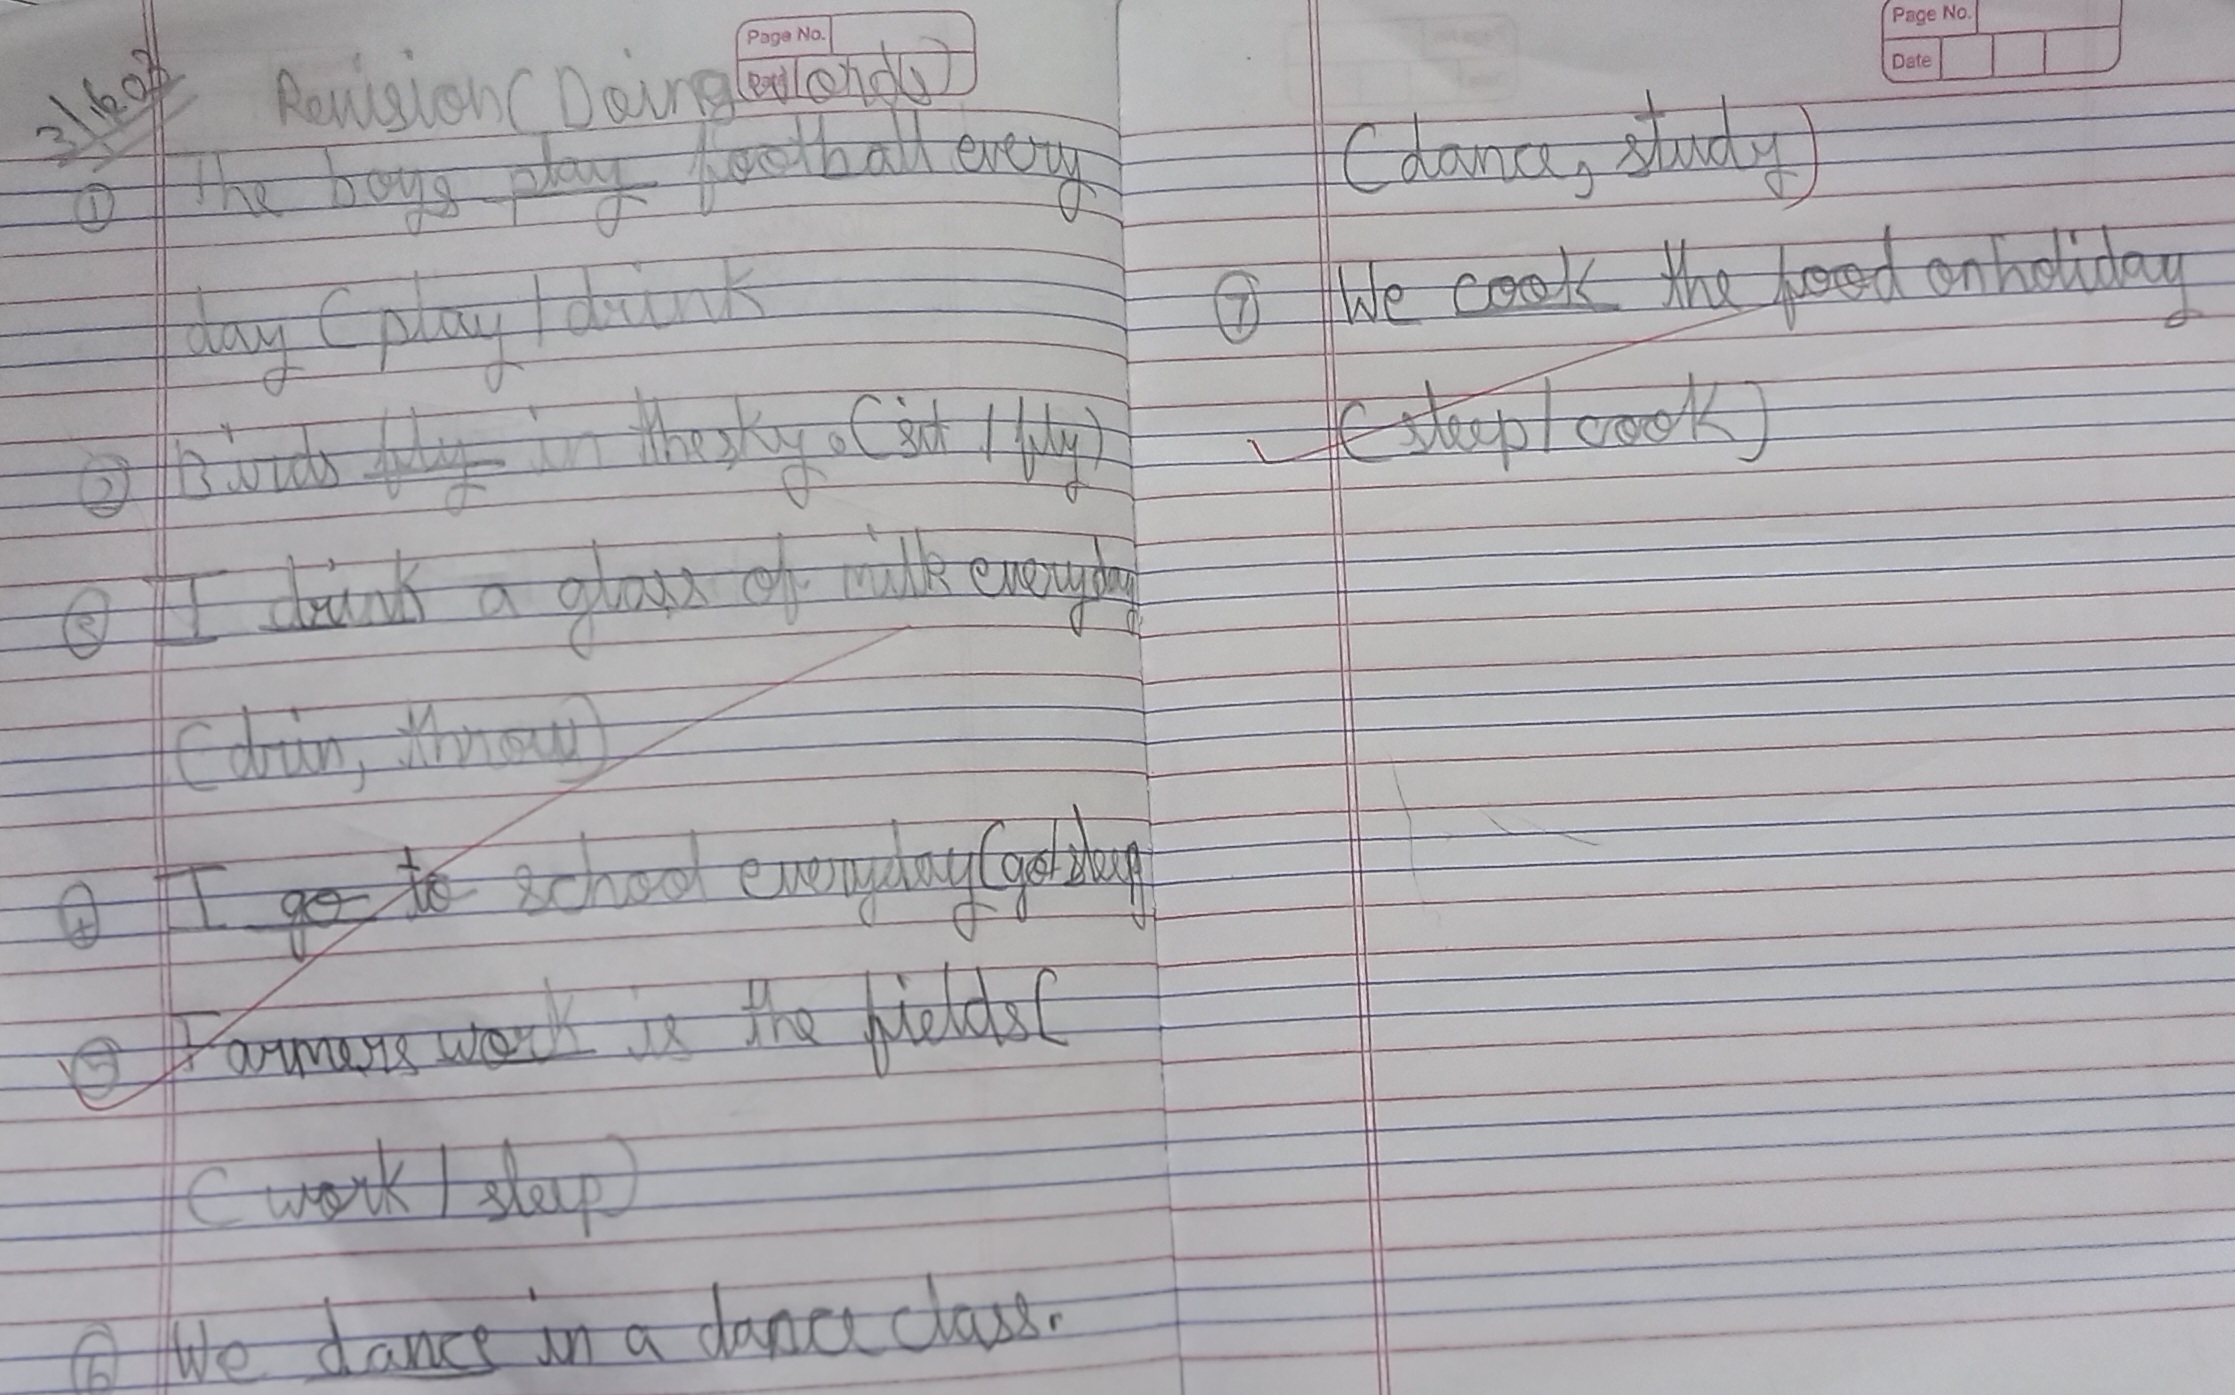 Page No.
Revision (Doing Words)
① The boys play football every
day (play / drink
② Birds fly in the sky. (sit / fly)
③ I drink a glass of milk everyday
(drin, throw)
④ I go to school everyday (go / sleep
⑤ Farmers work is the fields (
(work / sleep)
⑥ We dance in a dance class.
Page No.
Date
(dance, study)
⑦ We cook the food on holiday
(sleep / cook)